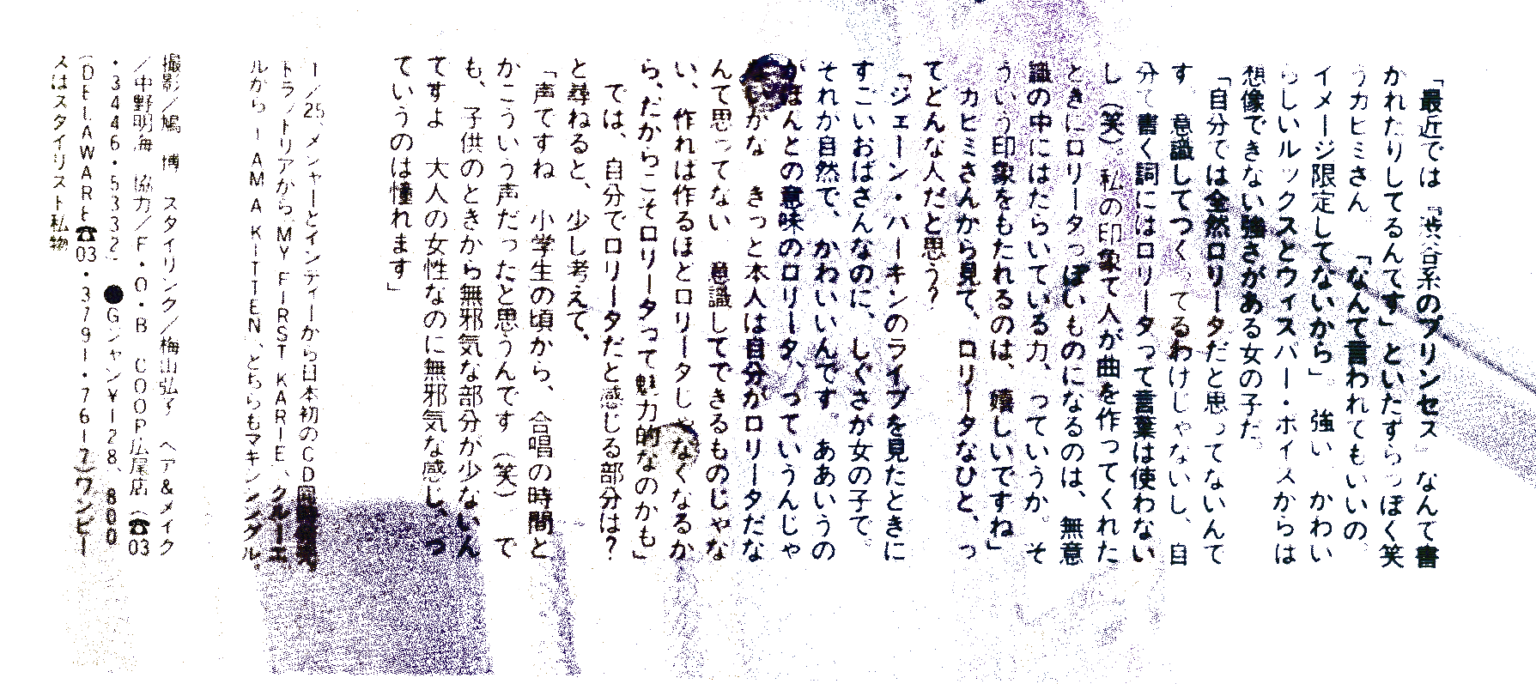 「最近では『渋谷系のプリンセス』なんて書
かれたりしてるんです」といたずらっぽく笑
うカヒミさん。「なんて言われてもいいの。
イメージ限定してないから」。強い。かわい
らしいルックスとウィスパー・ボイスからは
想像できない強さがある女の子だ。
「自分では全然ロリータだと思ってないんで
す。意識してつくってるわけじゃないし、自
分で書く詞にはロリータって言葉は使わない
し（笑）。私の印象で人が曲を作ってくれた
ときにロリータっぽいものになるのは、無意
識の中にはたらいている力、っていうか。そ
ういう印象をもたれるのは、嬉しいですね」
カヒミさんから見て、ロリータなひと、っ
てどんな人だと思う？
「ジェーン・バーキンのライブを見たときに
すごいおばさんなのに、しぐさが女の子で、
それが自然で、かわいいんです。ああいうの
がほんとの意味のロリータ、っていうんじゃ
ないかな。きっと本人は自分がロリータだな
んて思ってない。意識してできるものじゃな
い、作れば作るほどロリータじゃなくなるか
ら、だからこそロリータって魅力的なのかも」
では、自分でロリータだと感じる部分は？
と尋ねると、少し考えて、
「声ですね。小学生の頃から、合唱の時間と
かこういう声だったと思うんです（笑）。で
も、子供のときから無邪気な部分が少ないん
ですよ。大人の女性なのに無邪気な感じ、っ
ていうのは憧れます」
1/25、メジャーとインディーから日本初のCD
トラットリアからMY FIRST KARIE、クルーエ
ルからI AM A KITTEN、どちらもマキシシングル。
撮影／鳩　博　スタイリング／梅山弘子　ヘア&メイク
／中野明海　協力／F・O・B　COOP広尾店（☎03
・3446・5332）●Gジャン¥128、800
(DELAWARE☎03・3791・7617)ワンピー
スはスタイリスト私物